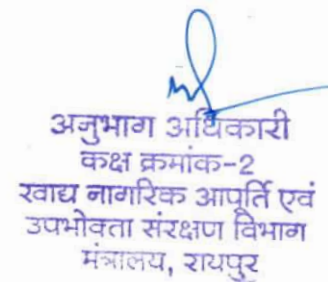 अनुभाग अधिकारी
कक्ष क्रमांक-2
खाद्य नागरिक आपूर्ति एवं
उपभोक्ता संरक्षण विभाग
मंत्रालय, रायपुर